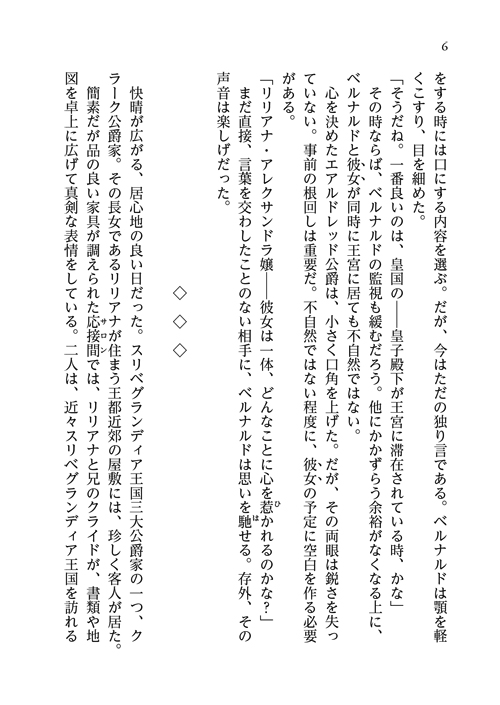 6
をする時には口にする内容を選ぶ。だが、今はただの独り言である。ベルナルドは顎を軽
くこすり、目を細めた。
「そうだね。一番良いのは、皇国の――皇子殿下が王宮に滞在されている時、かな」
その時ならば、ベルナルドの監視も緩むだろう。他にかかずらう余裕がなくなる上に、
ベルナルドと彼女が同時に王宮に居ても不自然ではない。
心を決めたエアルドレッド公爵は、小さく口角を上げた。だが、その両眼は鋭さを失っ
ていない。事前の根回しは重要だ。不自然ではない程度に、彼女の予定に空白を作る必要
がある。
「リリアナ・アレクサンドラ嬢――彼女は一体、どんなことに心を惹かれるのかな？」
まだ直接、言葉を交わしたことのない相手に、ベルナルドは思いを馳せる。存外、その
声音は楽しげだった。
◇ ◇ ◇
快晴が広がる、居心地の良い日だった。スリベグランディア王国三大公爵家の一つ、ク
ラーク公爵家。その長女であるリリアナが住まう王都近郊の屋敷には、珍しく客人が居た。
簡素だが品の良い家具が調えられた応接間では、リリアナと兄のクライドが、書類や地
図を卓上に広げて真剣な表情をしている。二人は、近々スリベグランディア王国を訪れる